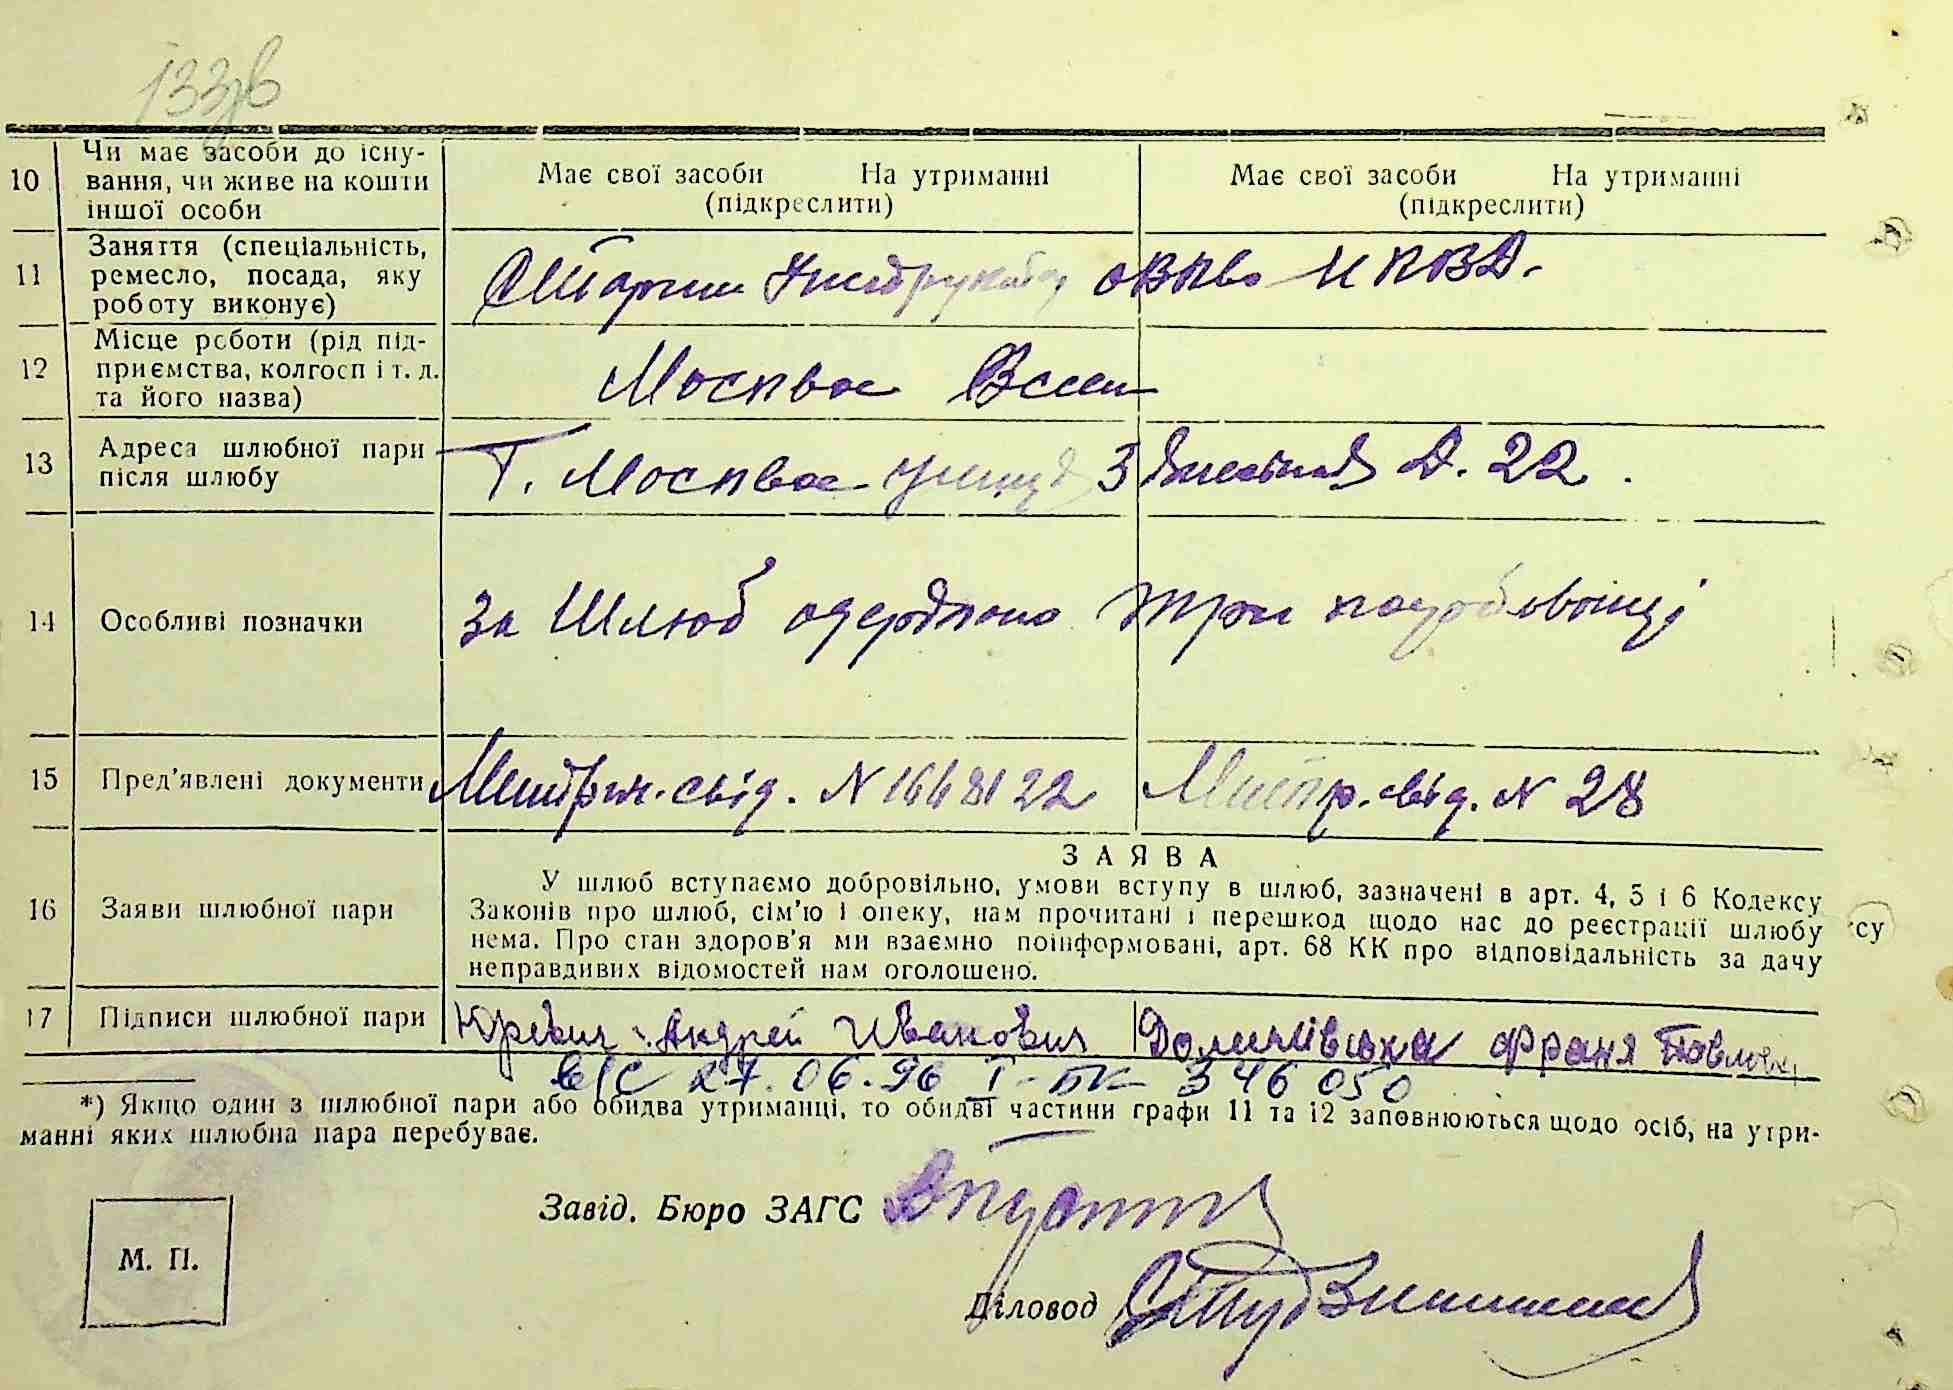 133зв
10 Чи має засоби до існу-
вання, чи живе на кошти
іншої особи
Має свої засоби На утриманні
(підкреслити)
Має свої засоби На утриманні
(підкреслити)
11 Заняття (спеціальність,
ремесло, посада, яку
роботу виконує)
НКВД.
12 Місце роботи (рід під-
приємства, колгосп і т. д.
та його назва)
Москва
13 Адреса шлюбної пари
після шлюбу
Г. Москва Д. 22.
14 Особливі позначки
за Шлюб одержано три
15 Пред'явлені документи
свід. N
Метр. свід. N 28
ЗАЯВА
16 Заяви шлюбної пари
У шлюб вступаємо добровільно, умови вступу в шлюб, зазначені в арт. 4, 5 і 6 Кодексу
Законів про шлюб, сім'ю і опеку, нам прочитані і перешкод щодо нас до реєстрації шлюбу
нема. Про стан здоров'я ми взаємно поінформовані, арт. 68 КК про відповідальність за дачу
неправдивих відомостей нам оголошено.
су
17 Підписи шлюбної пари
Юревич Андрей Иванович
Франя
27.06.96 I-БК 346050
*) Якщо один з шлюбної пари або обидва утриманці, то обидві частини графи 11 та 12 заповнюються щодо осіб, на утри-
манні яких шлюбна пара перебуває.
Завід. Бюро ЗАГС
М. П.
Діловод